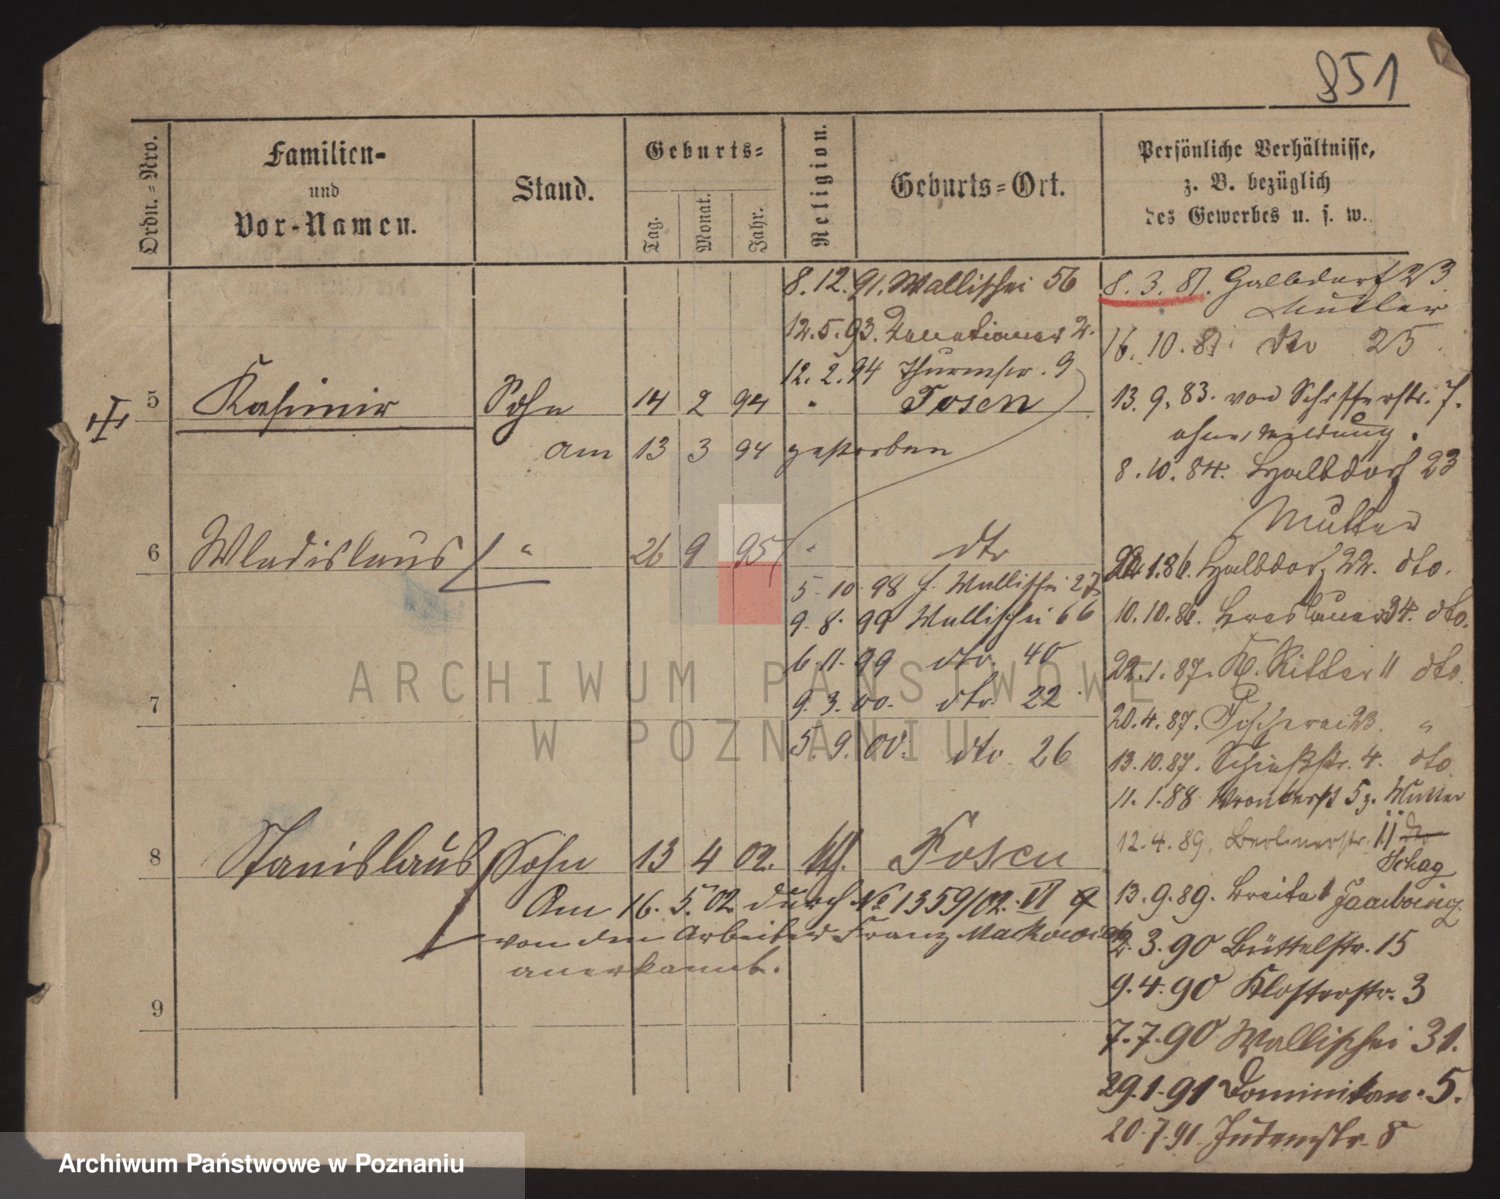 851
Ordn.=Nro.
Familien-
und
Vor-Namen.
Stand.
Geburts=
Tag.
Monat.
Jahr.
Religion.
Geburts=Ort.
Persönliche Verhältnisse,
z. B. bezüglich
des Gewerbes u. s. w.
8.12.91. Wallischei 56
12.5.93. 2.
12.2.94 Thurmstr. 9
5 Kasimir Sohn 14 2 94 " Posen
am 13 3 94 gestorben
6 Wladislaus " 26 9 95 " dto
5.10.98 Wallischei 27
9.8.99 Wallischei 66
6.11.99 dto. 40
7
9.3.00. dto 22
5.9.00. dto 26
8 Stanislaus Sohn 13 4 02. kth. Posen
Am 16.5.02 durch No 1359/02. VI
von dem Arbeiter Franz Mackowiak
anerkannt.
9
8.3.81. Halbdorf 23
Mutter
16.10.81. dto 25
13.9.83. von Schifferstr. 7.
ohne Meldung.
8.10.84. Halbdorf 23
Mutter
1.86. Halbdorf 22. dto.
10.10.86. Breslauer 34. dto.
22.1.87. Kl. Ritter 11 dto.
20.4.87. Fischerei 23. "
13.10.87. Schießstr. 4. dto.
11.1.88 Wronkerst Mutter
12.4.89. Berlinerstr. 11 dto
13.9.89. Breitest
3.90 Büttelstr. 15
9.4.90 Klosterstr. 3
7.7.90 Wallischei 31.
29.1.91 Dominikan. 5.
20.7.91. Judenstr. 8
ARCHIWUM PAŃSTWOWE
W POZNANIU
Archiwum Państwowe w Poznaniu